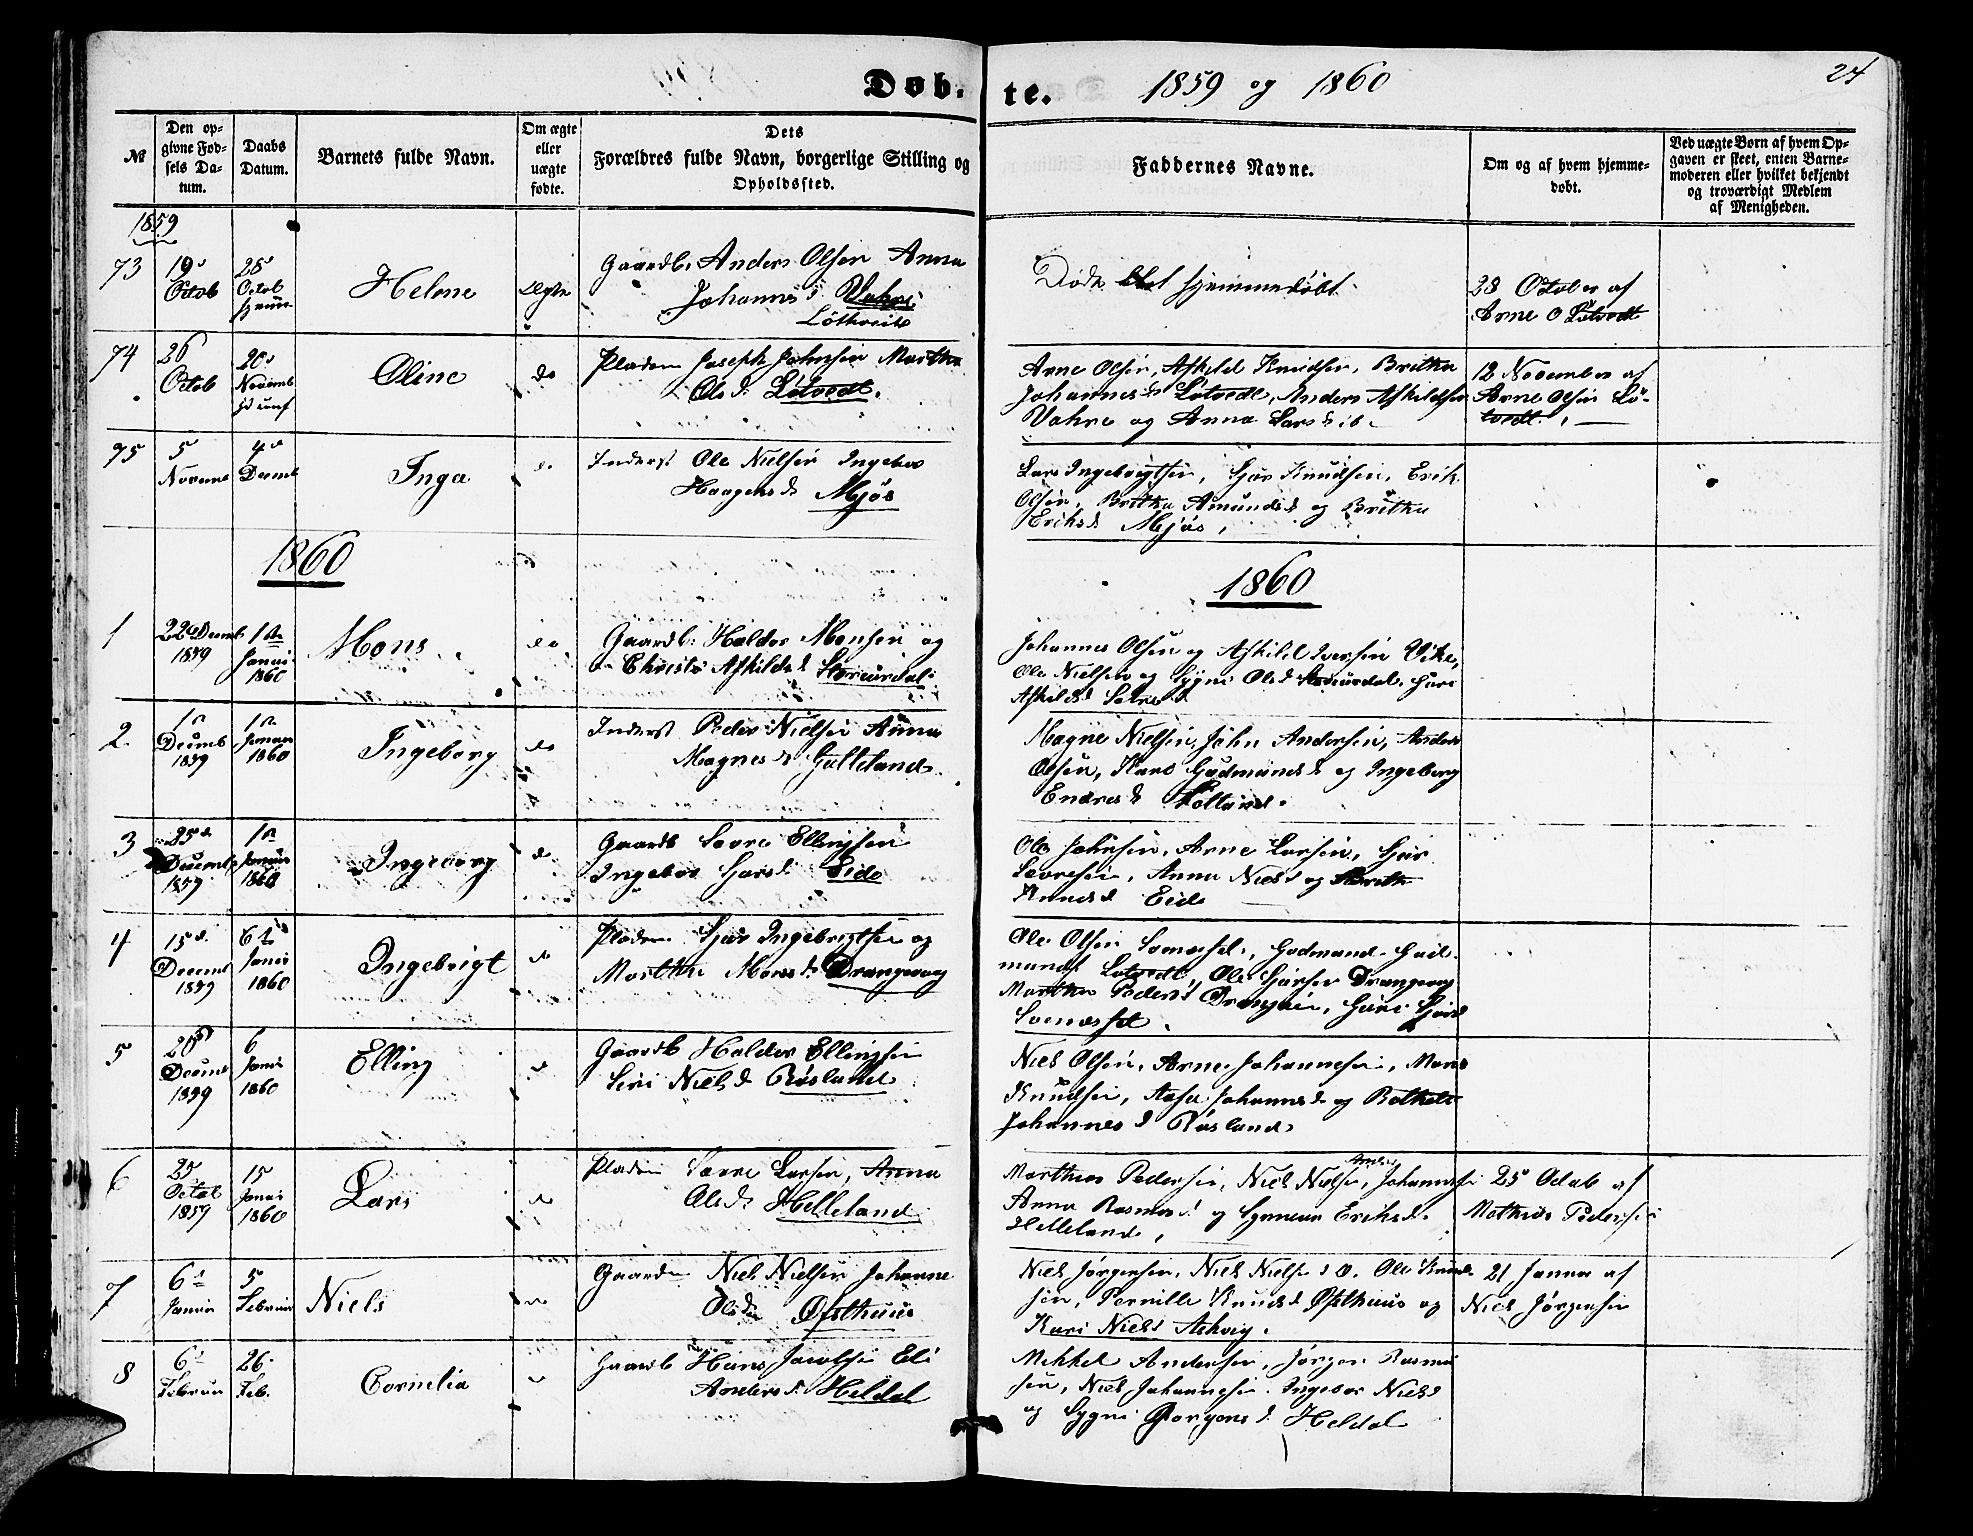 Døb- te. 1859 og 1860
24
№
Den op-
givne Fød-
sels Da-
tum.
Daabs
Datum.
Barnets fulde Navn.
Om ægte
eller
uægte
fødte.
Dets
Forældres fulde Navn, borgerlige Stilling og
Opholdssted.
Faddernes Navne.
Om og af hvem hjemme-
døbt.
Ved uægte Børn af hvem Op-
gaven er skeet, enten Barne-
moderen eller hvilket bekjendt
og troværdigt Medlem
af Menigheden.
1859
73
19
Octob
28
Octob
Helene
Ægte
Gaardb. Anders Olsen Anna
Johannes d Vahre
Døde hjemmedøbt
28 October af
Arne O Løtvedt
74
26
Octob
20
Novemb
Oline
do
Pladsm Joseph Johnsen Martha
Ols d. Løtvedt.
Arne Olsen, Askild Knudsen, Britha
Johannes d Løtvedt, Anders Askildsen
Vahre og Anna Lars d ib.
12 November af
Arne Olsen Lø-
tvedt.
75
5
Novemb
4
Decemb
Inga
do
Inderst Ole Nielsen Ingebor
Haagens d Mjøs
Lars Ingebrigtsen, Sjur Knudsen, Erik
Olsen, Britha Amunds d og Britha
Eriks d Mjøs,
1860
1860
1
22 Decemb
1859
1
Januar
1860
Mons
do
Gaardb. Haldor Monsen og
Christi Askilds d
Johannes Olsen og Askild Iversen Vike,
Ole Nielsen og Sygni Ols d
Askilds d
2.
1
Decemb
1859
1
Januar
1860
Ingeborg
do
Inderst Peder Nielsen Anna
Magnes d Gulleland
Magne Nielsen, John Andersen, Anders
Olsen, Kari Gudmands d og Ingeborg
Endres d
3
25
Decemb
1859
1
Januar
1860
Ingeborg
do
Gaardb Sævre Ellingsen
Ingebor Sjurs d Eide
Ole Johnsen, Arne Larsen, Sjur
Sævresen, Anna Niels d og
Knuds d Eide
4
15
Decemb
1859
6
Januar
1860
Ingebrigt
do
Pladsm Sjur Ingebrigtsen og
Martha Mons d Drangevaag
Ole Olsen, Gudmand Gud-
mands Løtvedt, Ole Sjursen Drangevag
Martha Peders d
5
28
Decemb
1859
6
Januar
1860
Elling
Gaardb Haldor Ellingsen
Siri Niels d Røsland
Niels Olsen, Arne Johannesen, Mons
Knudsen, Johannes d og Bothele
Johannes d Røsland
6
25
Octob
1859
15
Januar
1860
Lars
Pladsm Sævre Larsen, Anna
Ols d Helleland
Mathias Pedersen, Niels Nielsen, Johannes
Anna Rasmus d og Eriks d.
Helleland,
25 Octob af
Mathias Pedersen
7
6
Januar
5
Februar
Niels
Gaardm Niels Nielsen Johanne
Ols d Østhuus
Niels Jørgensen, Niels Nielsen Ole Knud-
sen, Pernille Knuds d Østhuus og
Kari Niels d Askvig.
21 Januar af
Niels Jørgensen
8
6
Februar
26
Feb.
Cornelia
Gaardb Hans Jacobsen Eli
Anders d. Heldal
Mikkel Andersen, Jørgen Rasmu-
sen, Niels Johannesen. Ingebor Niels d
og Sygni Jørgens d. Heldal